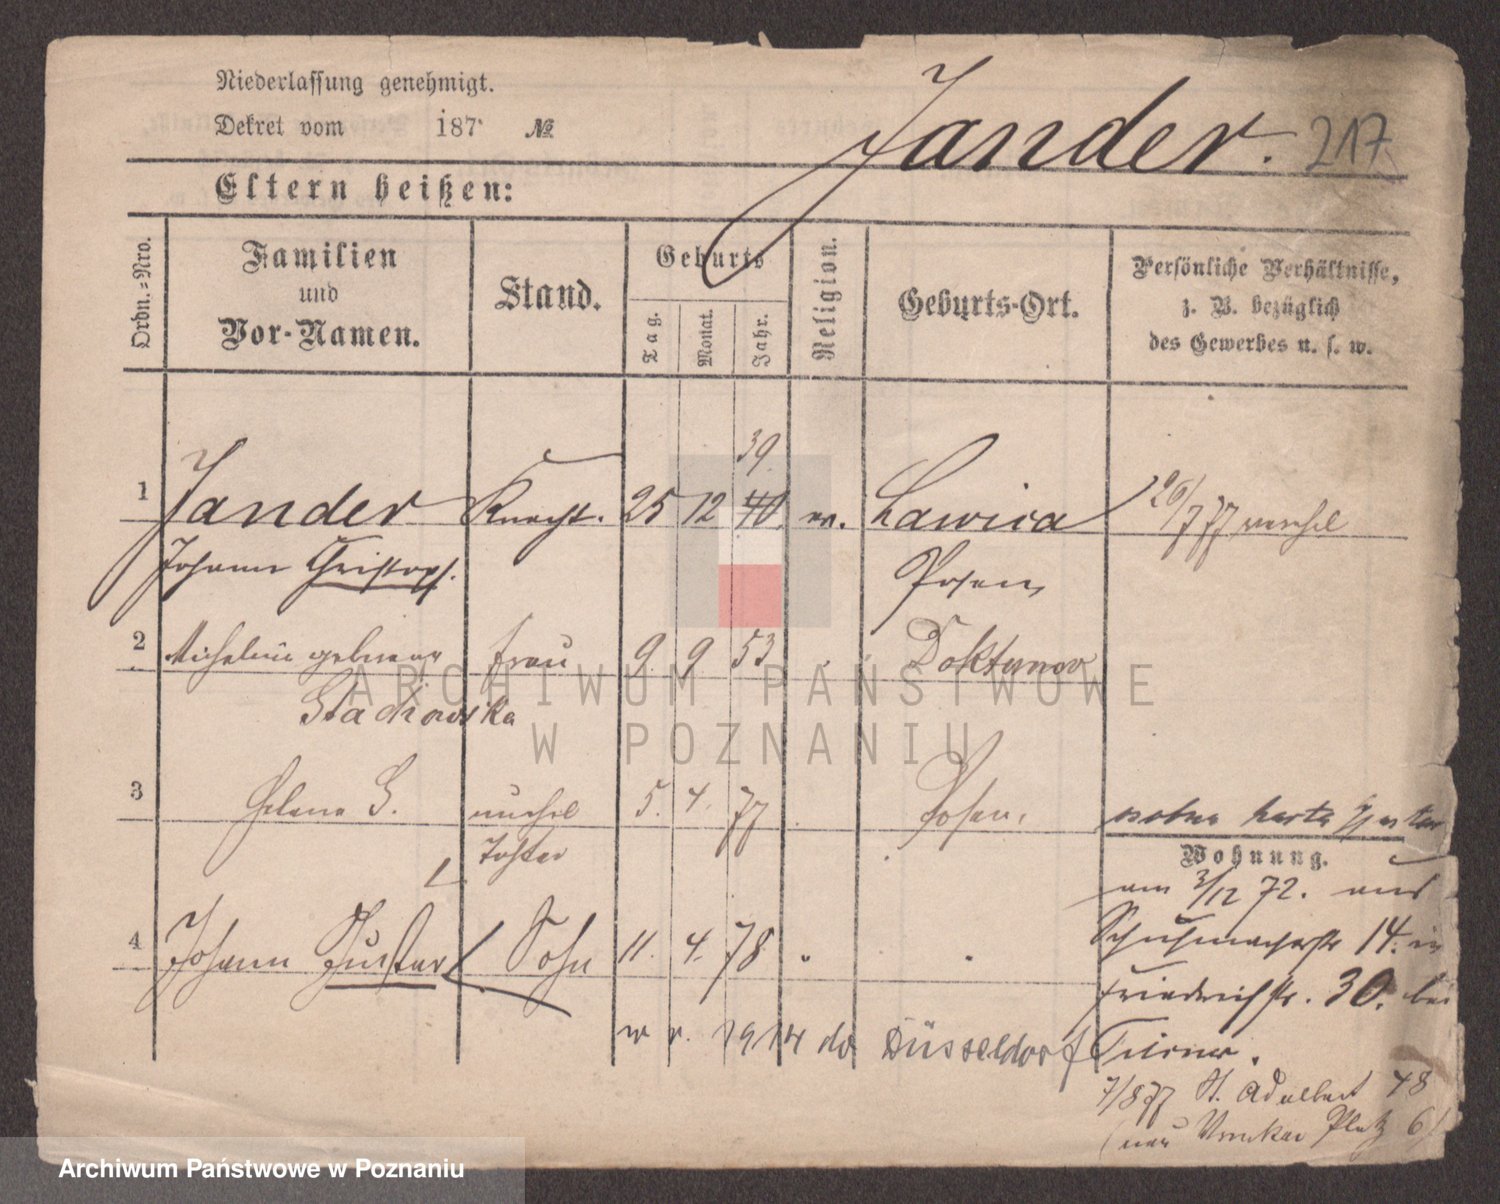 Niederlassung genehmigt.
Dekret vom 187 №
Jander. 217
Eltern heißen:
Ordn.=Nro.
Familien
und
Vor-Namen.
Stand.
Geburts
Tag.
Monat.
Jahr.
Religion.
Geburts-Ort.
Persönliche Verhältnisse,
z. B. bezüglich
des Gewerbes u. s. w.
39
1 Jander Knecht. 25 12 40. Lawica
Johann Christoph. Posen
2 geborene Frau 9 9 53
Stachowska
3 Helena S. unehel 5. 4. 77 Posen.
Tochter
Wohnung.
am 3/12 72. aus
4 Johann Gustav Sohn 11. 4. 78 " "
Schuhmacherstr 14. in
Friedrichstr. 30. bei
w r. 1914 do Düsseldorf
7/8 77 St. Adalbert 48
Platz 6)
ARCHIWUM PAŃSTWOWE
W POZNANIU
Archiwum Państwowe w Poznaniu